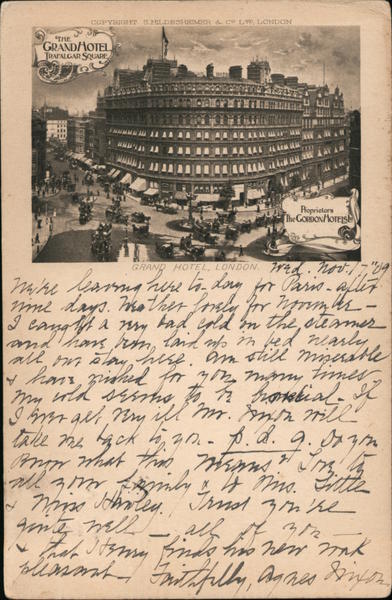 COPYRIGHT S. HILDESHEIMER & Co Ltd, LONDON
THE
GRAND HOTEL
TRAFALGAR SQUARE
Proprietors
The GORDON HOTELS Ld
GRAND HOTEL, LONDON.
Wed. Nov. 1
We're leaving here to-day for Paris - after
nine days. Weather lovely for November -
I caught a very bad cold on the steamer
and have been laid up in bed nearly
all our stay here. Am still miserable
& I have wished for you many times
my cold seems to be bronchial. If
I ever get very ill Mr. Dixon will
take me back to you - p. d. q. Do you
know what this means? Love to
all your family & to Mrs. Little
& Miss Hawley. Trust you're
quite well - all of you -
& that Henry finds his new work
pleasant - Faithfully, Agnes Dixon